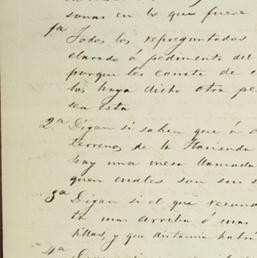 sonas en lo que fuere
1ª Todos los repreguntados
clarado á pedimento del
porque les conste de
los haya dicho otra pe
sea esta
2ª Digan si saben que á
terrenos de la Hacienda
hay una mesa llamada
quen cuales son sus
3ª Digan si el que recono
ta mas arriba ó mas
tillas, y que distancia habrá
4ª